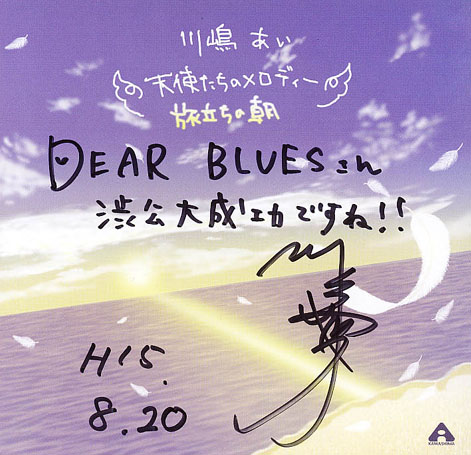 川嶋 あい
天使たちのメロディー
旅立ちの朝
DEAR BLUESさん
渋公大成功ですね!!
H15.
8.20